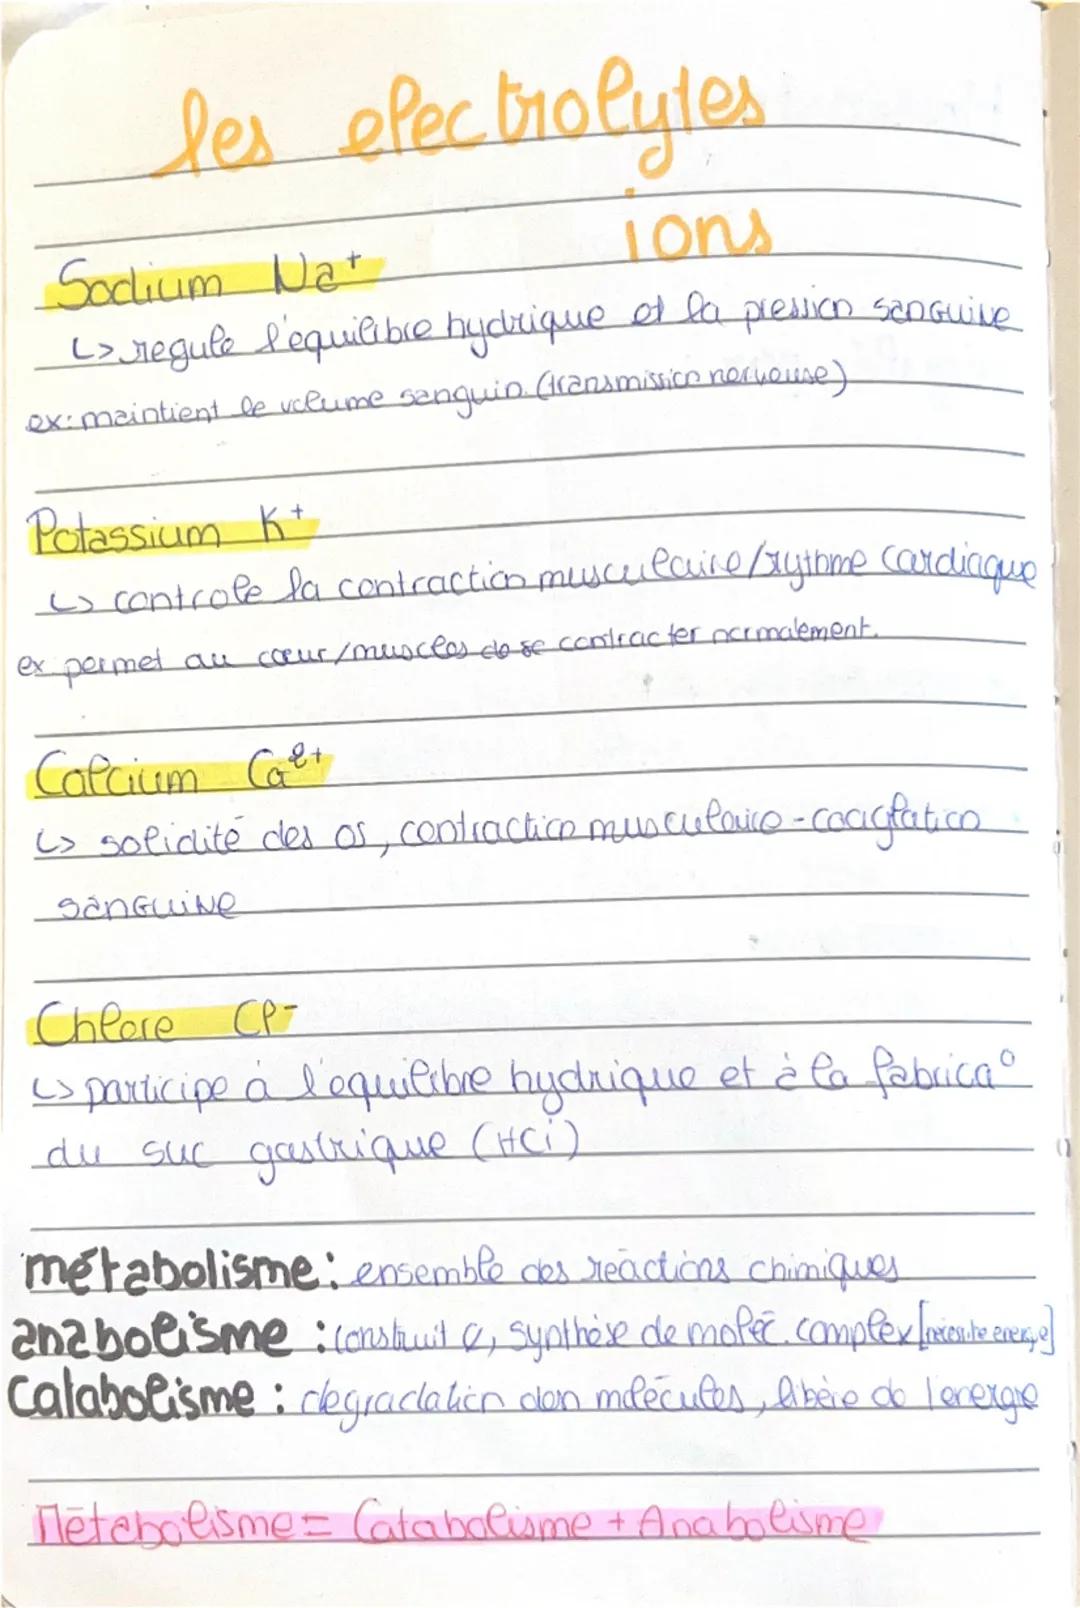 les electrolytes
ions
Sodium Na+
↳ regule l'équilibre hydrique et la pression sanguine
ex: maintient le volume sanguin. (transmission nerveuse)
Potassium K+
↳ controle la contraction musculaire/rythme cardiaque
ex permet au cœur/muscles de se contracter normalement.
Calcium Ca2+
↳ solidité des os, contraction musculaire - coaglation
sanguine
Chlore Cl-
↳ participe à l'equilibre hydrique et à la fabrica°
du suc gastrique (HCi)
métabolisme: ensemble des réactions chimiques
anabolisme : construit , synthèse de moléc. complex [nécessite energie]
Catabolisme : degradation molécules, libère de l'energie
Métabolisme = Catabolisme + Anabolisme